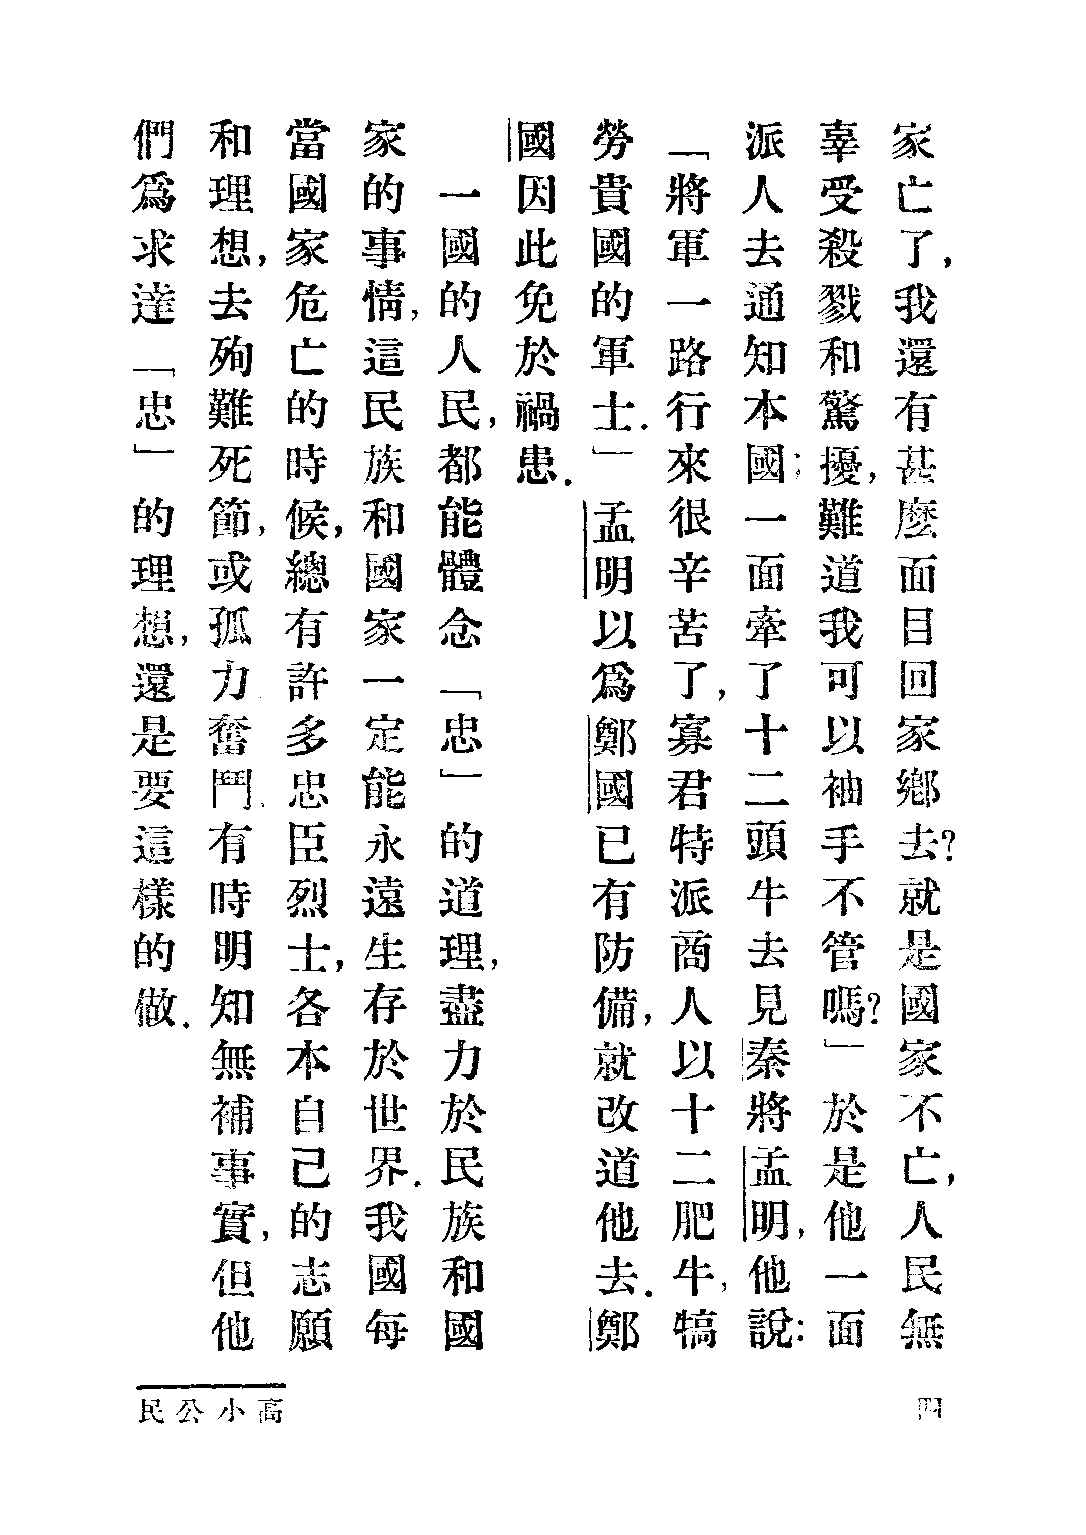 家亡了,我還有甚麼面目回家鄉去?就是國家不亡,人民無
辜受殺戮和驚擾,難道我可以袖手不管嗎?」於是他一面
派人去通知本國;一面牽了十二頭牛去見秦將孟明,他說:
「將軍一路行來很辛苦了,寡君特派商人以十二肥牛,犒
勞貴國的軍士.」孟明以爲鄭國已有防備,就改道他去.鄭
國因此免於禍患.
一國的人民,都能體念「忠」的道理,盡力於民族和國
家的事情,這民族和國家一定能永遠生存於世界.我國每
當國家危亡的時候,總有許多忠臣烈士,各本自己的志願
和理想,去殉難死節,或孤力奮鬥.有時明知無補事實,但他
們爲求達「忠」的理想,還是要這樣的做.
高小公民
四